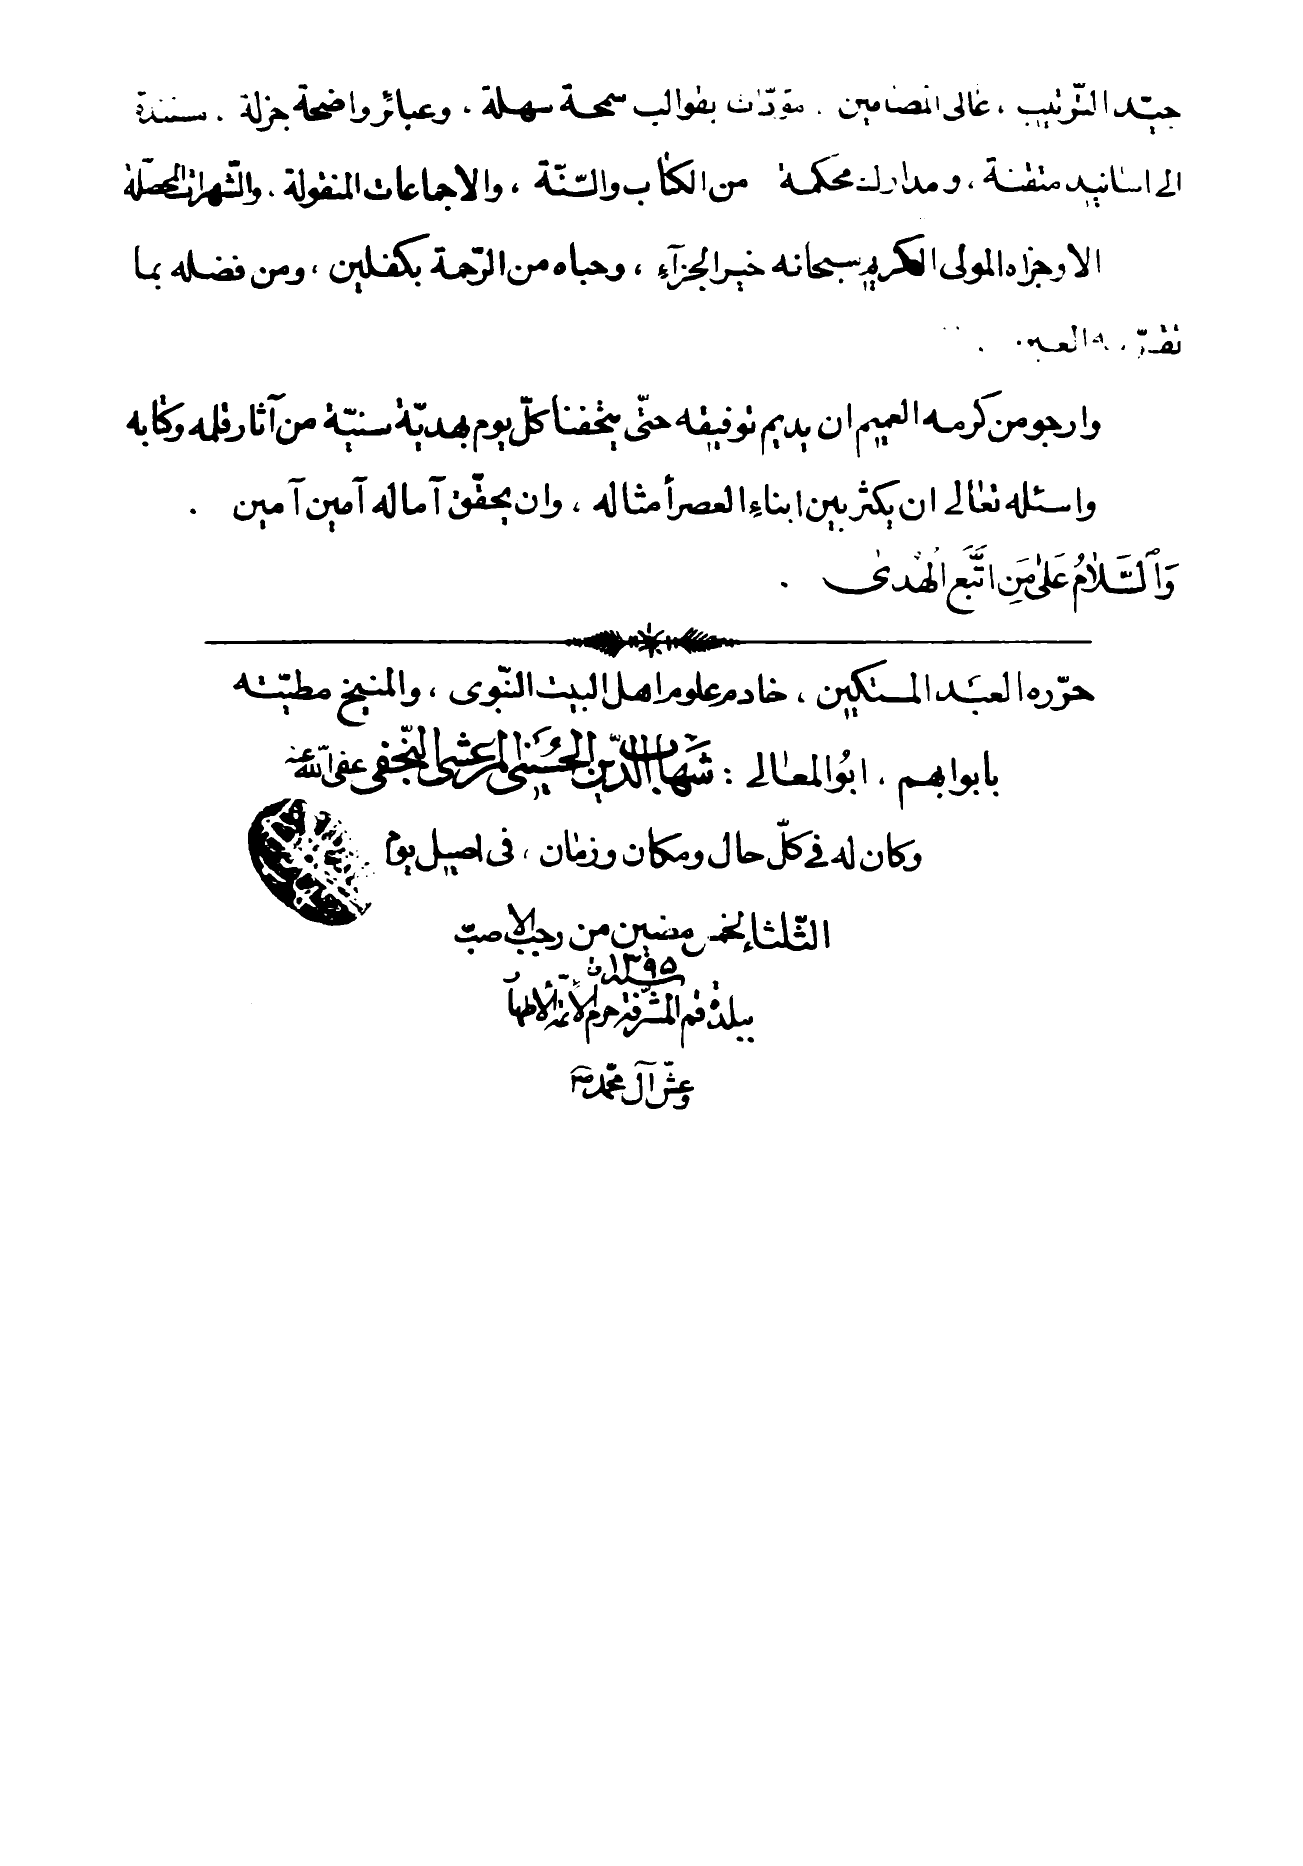 جيّد الترتيب ، عالى المضامين . مؤدّات بقوالب سمحة سهلة ، وعبائر واضحة جزلة . مستندة
الى اسانيد متقنة ، و مدارك محكمة من الكتاب والسّنّة ، والاجماعات المنقولة . والشّهرات المحصّلة
الا وجزاه المولى الكريم سبحانه خير الجزآء ، وحباه من الرّحمة بكفلين ، ومن فضله بما
تقرّ به العين .
وارجو من كرمه العميم ان يديم توفيقه حتّى يتحفنا كلّ يوم بهديّة سنيّة من آثار قلمه وكتابه
واسئله تعالى ان يكثر بين ابناء العصر أمثاله ، وان يحقّق آماله آمين آمين .
وَالسَّلامُ عَلىٰ مَنِ اتَّبَعَ الهُدىٰ .
حرّره العبد المستكين ، خادم علوم اهل البيت النّبوى ، والمنيخ مطيّته
بابوابهم ، ابوُ المعالى : شهاب الدّين الحُسَينى المرعشى النّجفى عفى اللّه عنه
وكان له فى كلّ حال ومكان وزمان ، فى اصيل يوم
الثّلثاء لخمس مضين من رجب الاصبّ
سنة ١٣٩٥ ق
ببلدة قم المشرّفة حرم الائمّة الأطهار
وعشّ آل محمّد ص